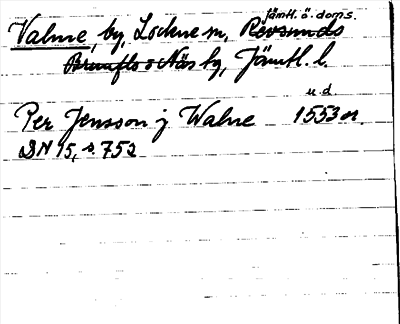 Valne, by, Lockne sn, Revsunds jämtl. ö. doms.
Brunflo o Näs tg, Jämtl. l.
u d.
Per Jensson j Walne 1553 or.
DN 15, s 752